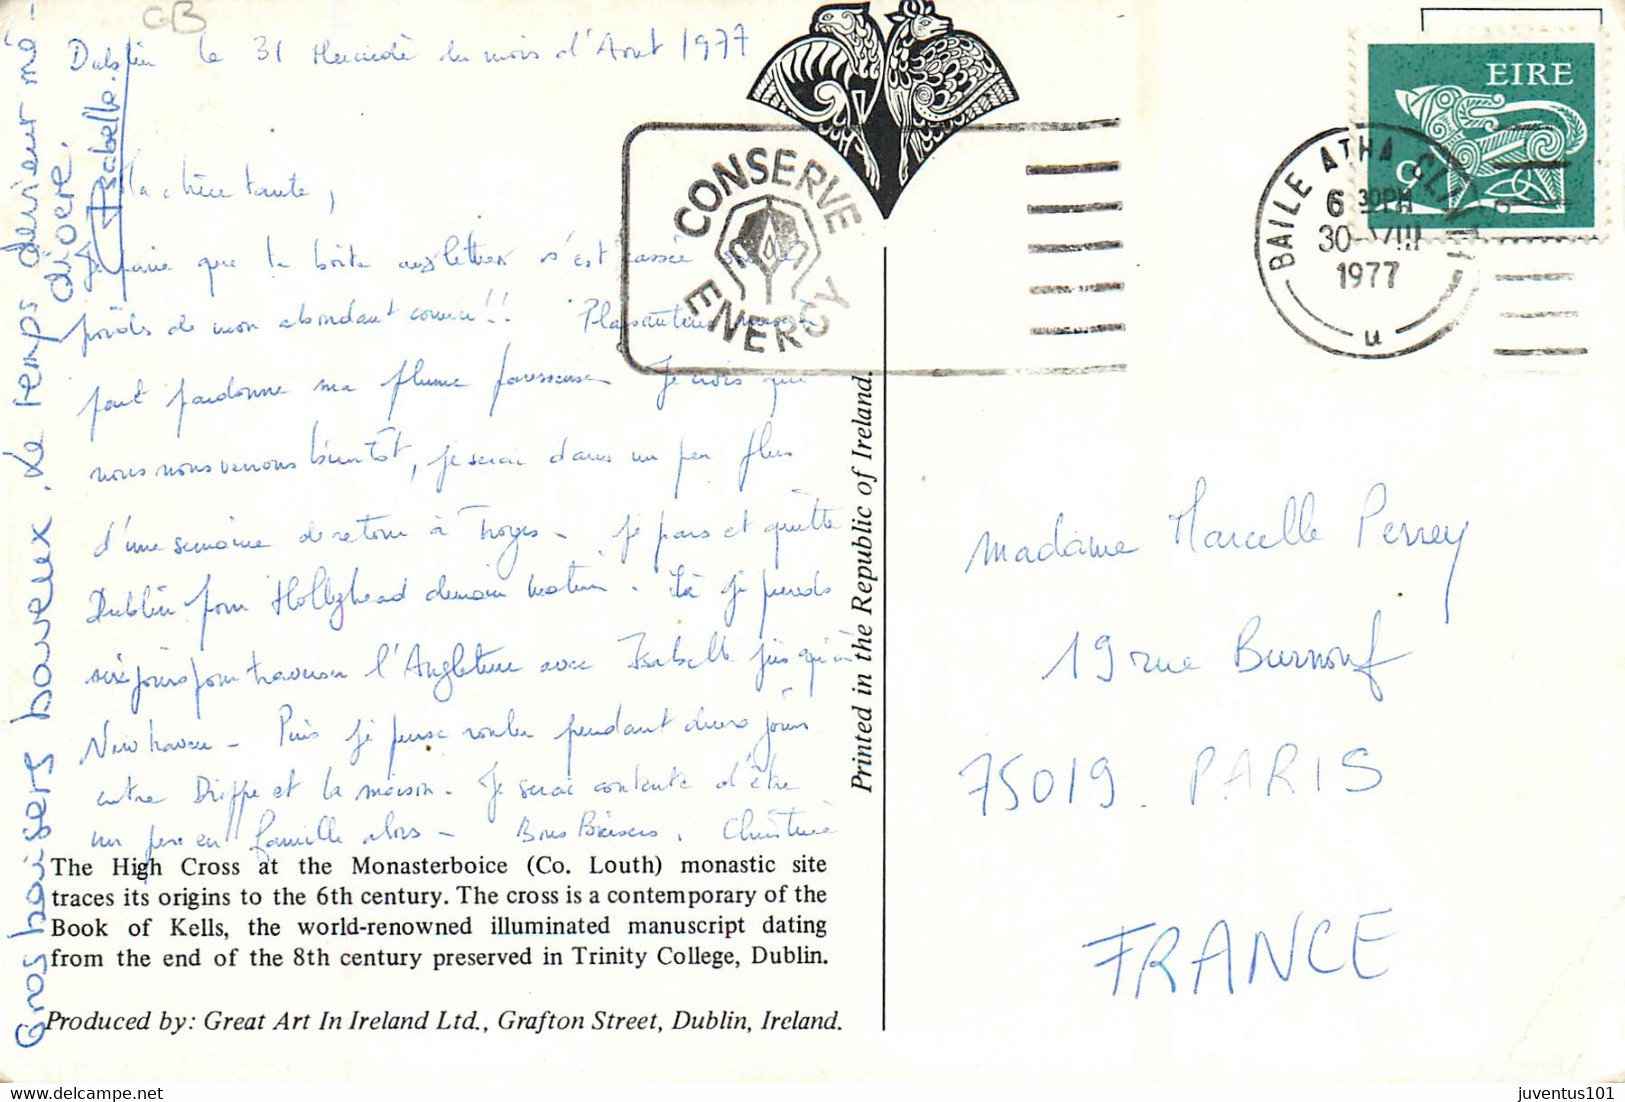 GB
Dublin le 31 du mois d'Aout 1977
Ma chère tante,
que la boite aux lettres s'est cassée sous le
poids de mon abondant courrier!! Plaisanterie mise à
part pardonne ma plume paresseuse Je crois que
nous nous verrons bientôt, je serai dans un peu plus
d'une semaine de retour à Troyes - Je pars et quitte
Dublin pour Hollyhead demain matin. Là je prends
six jours pour traverser l'Angleterre avec Isabelle jusqu'à
Newhaven - Puis je pense rouler pendant deux jours
entre Dieppe et la maison. Je serai contente d'être
un peu en famille alors - Bons Baisers. Christine
Gros baisers baveux. Le temps devient mé-
diocre.
Isabelle.
The High Cross at the Monasterboice (Co. Louth) monastic site
traces its origins to the 6th century. The cross is a contemporary of the
Book of Kells, the world-renowned illuminated manuscript dating
from the end of the 8th century preserved in Trinity College, Dublin.
Produced by: Great Art In Ireland Ltd., Grafton Street, Dublin, Ireland.
Printed in the Republic of Ireland.
CONSERVE
ENERGY
EIRE
9
BAILE ATHA CLIATH
6 30PM
30 VIII
1977
u
Madame Marcelle Perrey
19 rue Burnouf
75019. PARIS
FRANCE
juventus101